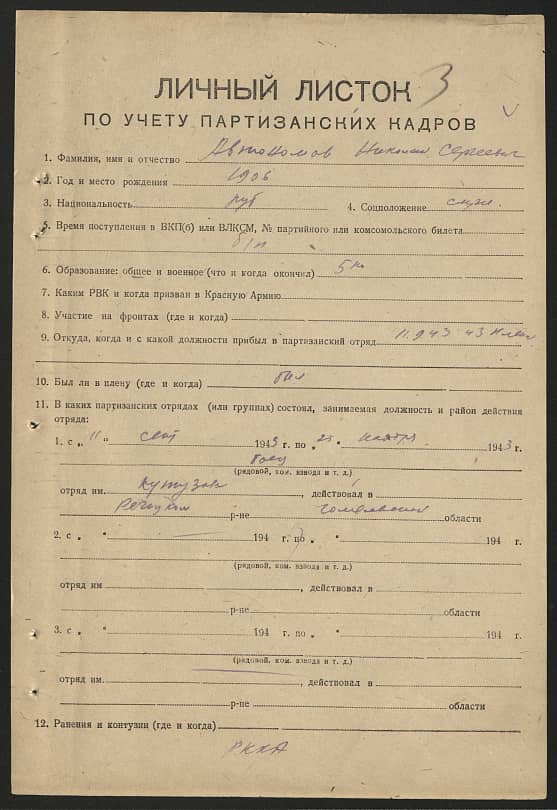 ЛИЧНЫЙ ЛИСТОК 3
ПО УЧЕТУ ПАРТИЗАНСКИХ КАДРОВ
1. Фамилия, имя и отчество Автономов Николай Сергеевич
2. Год и место рождения 1906
3. Национальность 4. Соцположение служ.
5. Время поступления в ВКП(б) или ВЛКСМ, № партийного или комсомольского билета
б/п
6. Образование: общее и военное (что и когда окончил) 5 кл
7. Каким РВК и когда призван в Красную Армию
8. Участие на фронтах (где и когда)
9. Откуда, когда и с какой должности прибыл в партизанский отряд 11.9 43 из плена
10. Был ли в плену (где и когда) был
11. В каких партизанских отрядах (или группах) состоял, занимаемая должность и район действия
отряда:
1. с „ 11 " сент 1943 г. по „ 25 " ноября 1943 г.
боец
(рядовой, ком. взвода и т. д.)
отряд им. Кутузова, действовал в
Речицким р-не Гомельской области
2. с „ " 194 г. по „ " 194 г.
(рядовой, ком. взвода и т. д.)
отряд им , действовал в
р-не области
3. с „ " 194 г. по „ " 194 г.
(рядовой, ком. взвода и т. д.)
отряд им. , действовал в
р-не области
12. Ранения и контузии (где и когда)
РККА